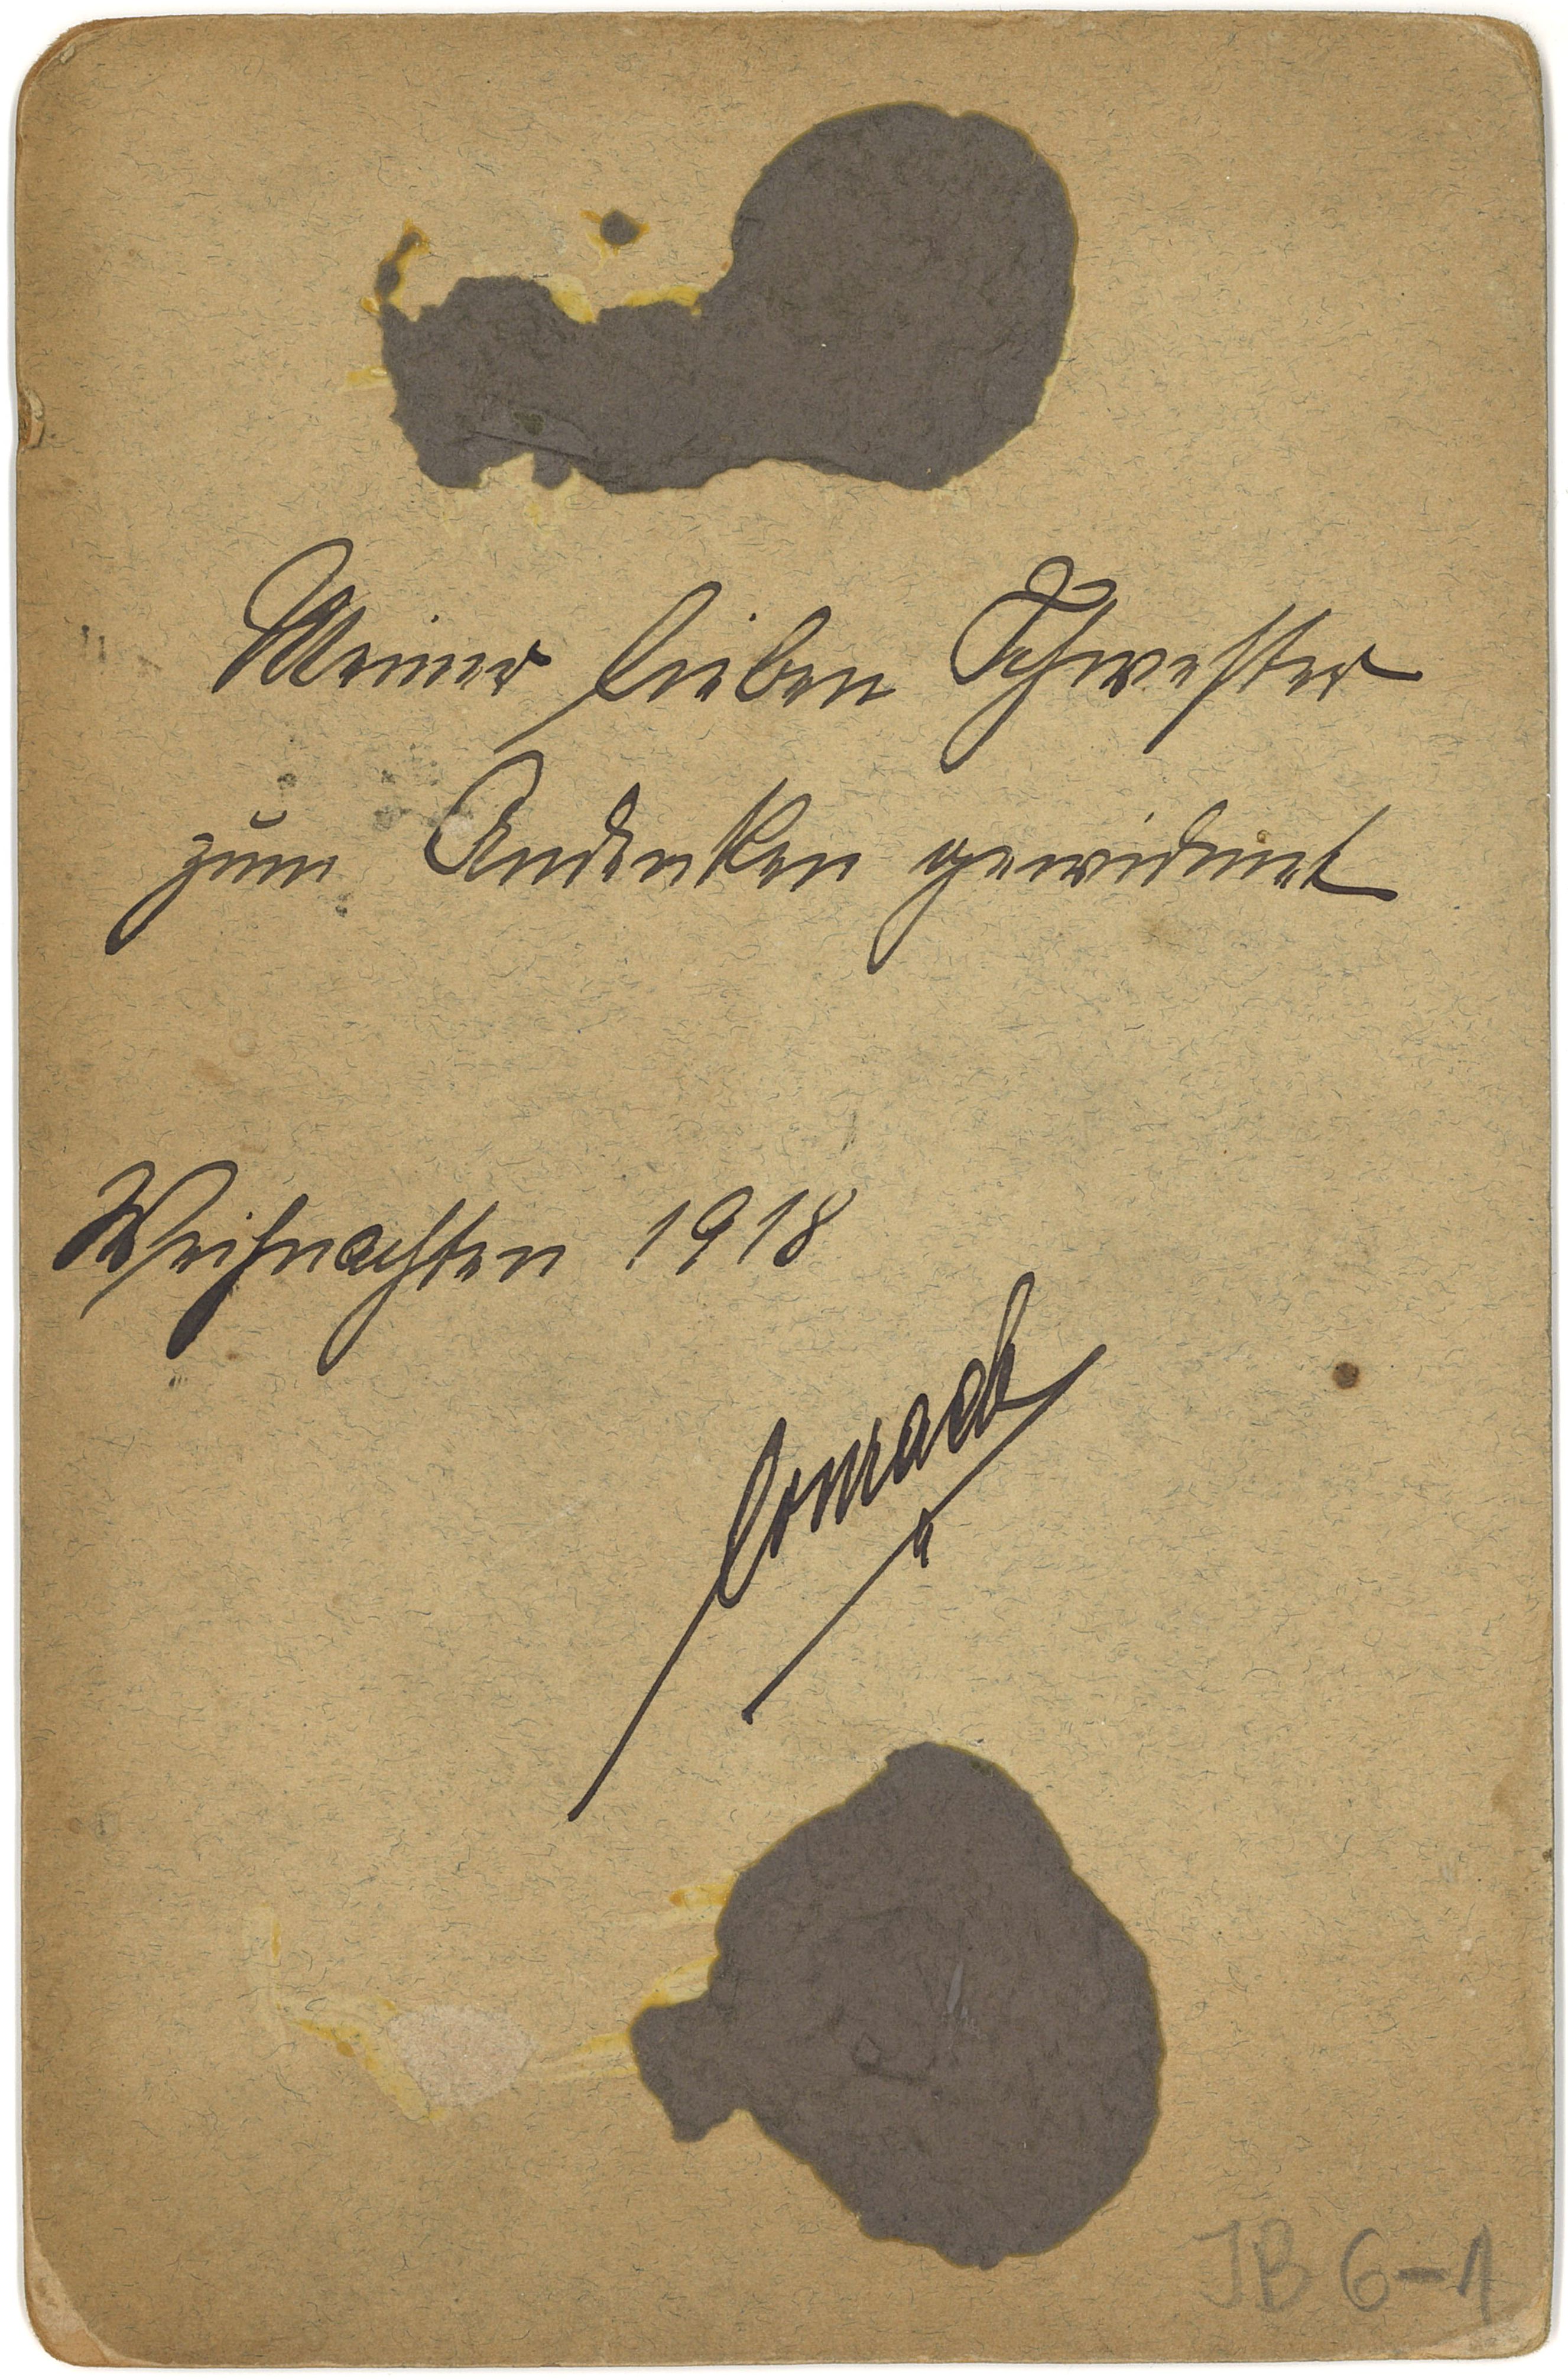 Meiner lieben Schwester
zum Andenken gewidmet
Weihnachten 1918
Conrad
JB 6-1